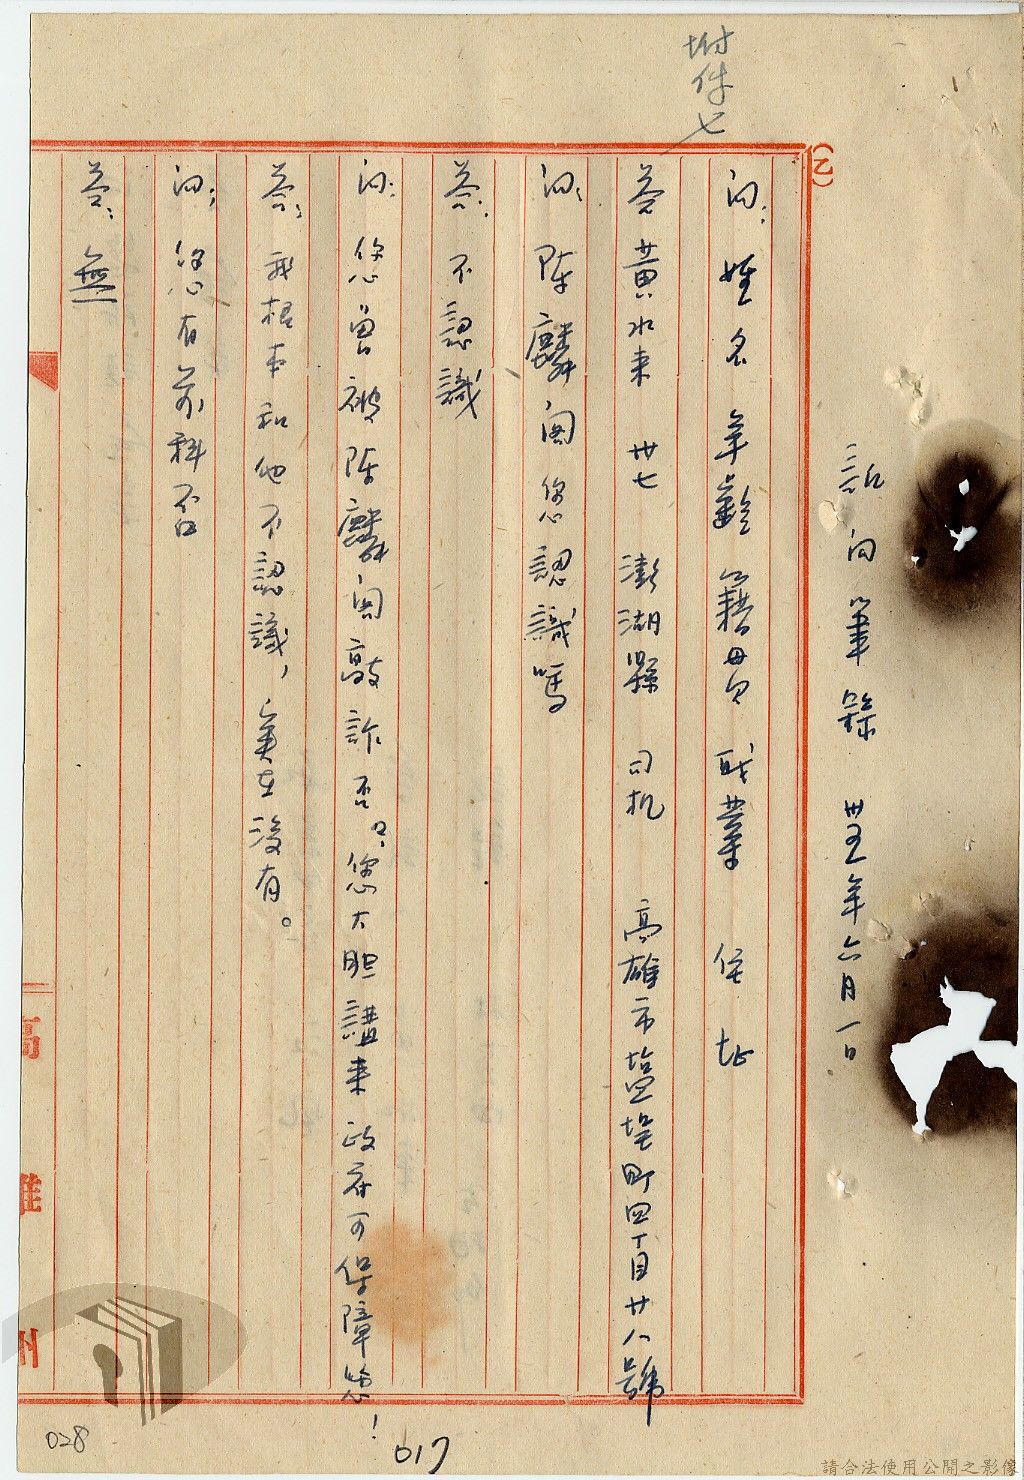 附件七
(乙)
訊問筆錄 卅五年六月一日
問：姓名 年齡 籍貫 職業 住址
答 黃水來 卅七 澎湖縣 司机 高雄市塩埕町四丁目廿八號
問：陳麟閣您認識嗎
答：不認識
問：您曾被陳麟閣敲詐否？您大胆講來政府可保障您！
答：我根本和他不認識，實在沒有。
問：您有前科否
答：無
高雄州
028
017
請合法使用公開之影像